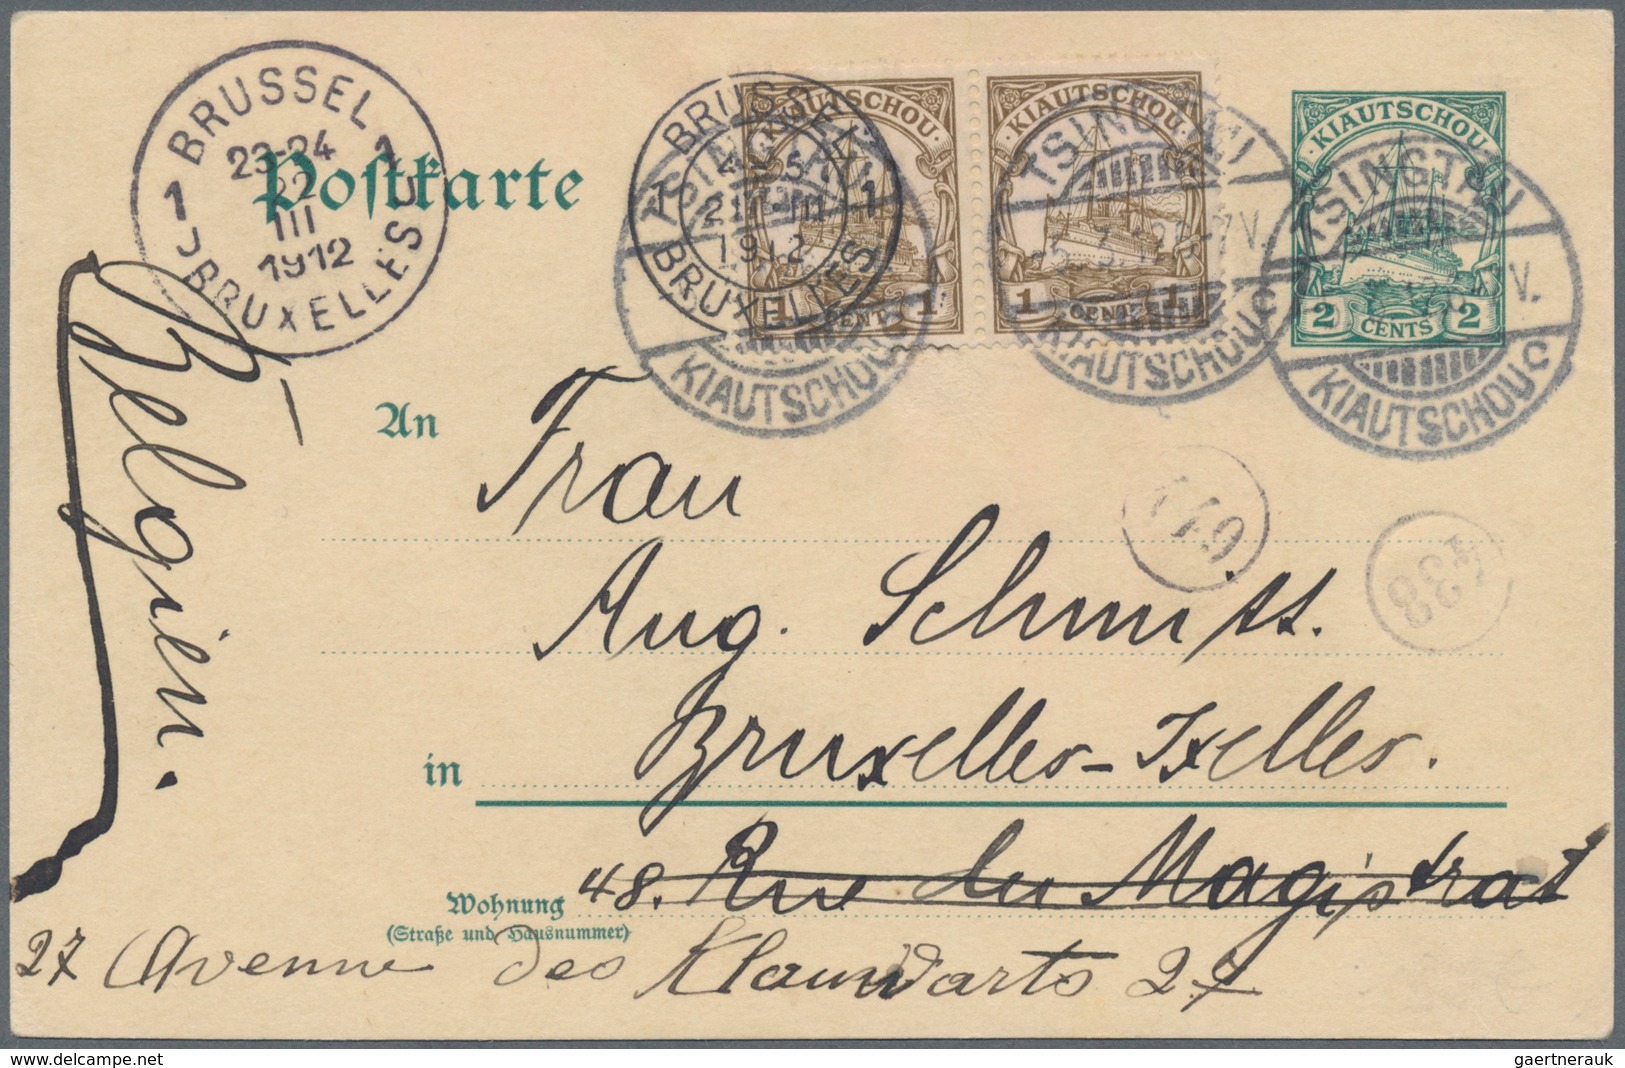 BRUSSEL
1 1
23-24
22
III
1912
BRUXELLES
Postkarte
BRUSSEL
1 1
4 - 5
21 III
1912
BRUXELLES
TSINGTAU
KIAUTSCHOU
KIAUTSCHOU
1 CENT 1
KIAUTSCHOU
1 CENT 1
TSINGTAU
7V.
KIAUTSCHOU
KIAUTSCHOU
2 CENTS 2
TSINGTAU
V.
KIAUTSCHOU
Belgien.
An Frau
Aug. Schmitt.
in Bruxelles-Ixelles.
Wohnung
(Straße und Hausnummer)
48. Rue du Magistrat
27 Avenue des Klauwarts 27
449
433
gaertnerauk